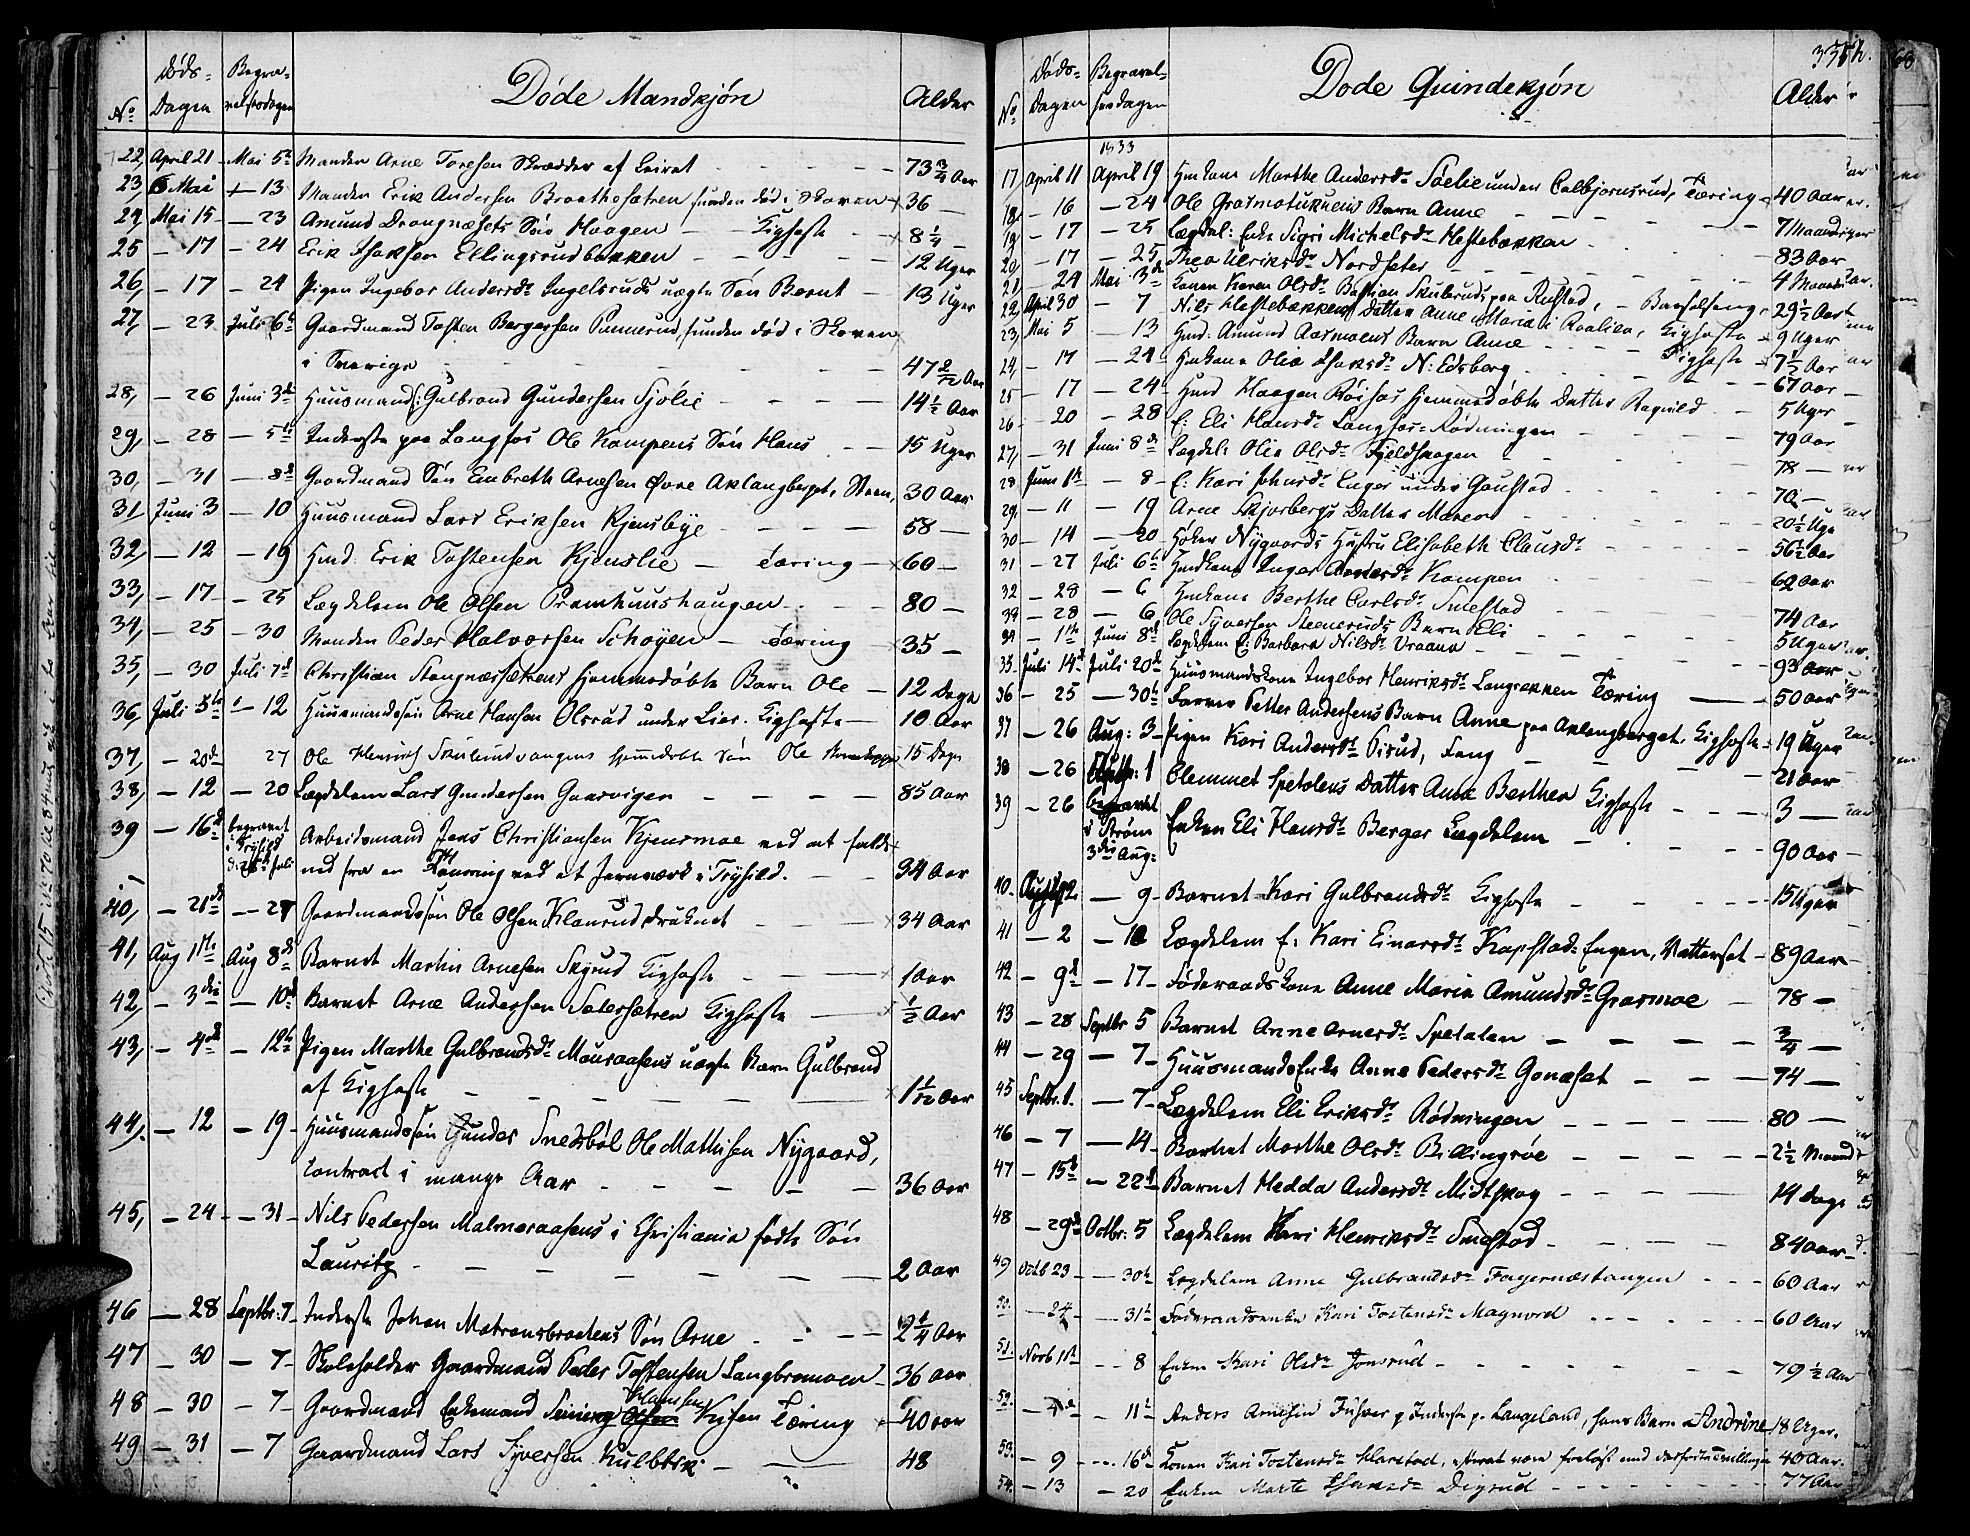 Døds- Begra-
No Dagen velsesdagen Døde Mandkjøn Alder
22, April 21 - Mai 5te Manden Arne Toresen Skrædder af Leirat - - - 73 3/4 Aar
23, 6 Mai - 13 Manden Erik Andersen Braathesætren funden død i Skoven 36 -
24, Mai 15 - 23 Amund Drangnæsets Søn Haagen - - Kighoste - 8 1/4 -
25 - 17 - 24 Erik Isaksen Ellingsrudbakken - - - 12 Uger
26, - 17 - 24 Pigen Ingebor Andersdr Ingelsruds uægte Søn Bernt - 13 Uger
27, - 23 Juli 6te Gaardmand Tosten Bergersen Pinnerud, funden død i Skoven
i Sverige - - - 47 2/12 Aar
28, - 26 Juni 3die Huusmand Gulbrand Gundersen Sjølie - - - 14 1/2 Aar
29, - 28 - 5te Inderste paa Langfos Ole Kampens Søn Hans - - 15 Uger
30, - 31 - 8de Gaardmand Søn Embreth Arnesen Øvre Aklangberget, Steen, 30 Aar
31, Juni 3 - 10 Huusmand Lars Eriksen Kjensbye - - - 58 -
32, - 12 - 19 Hmd. Erik Tostensen Kjenslie - Tæring - 60 -
33, - 17 - 25 Lægdslem Ole Olsen Pramhuushaugen - - 80 -
34, - 25 - 30 Manden Peder Halvorsen Schøyen - Tæring - 35 -
35, - 30 Juli 7de Christian Stangnæssækens hjemmedøbte Barn Ole - 12 Dage
36, Juli 5te - 12 Huusmandssøn Arne Hansen Olsrud under Lier. Kighoste - 10 Aar
37, - 20de 27 Ole Henrich Skulerudvangens hjemmedøbte Søn Ole 15 Dage
38, - 12 - 20 Lægdslem Lars Gundersen Gaarvigen - - - 85 Aar
39 - 16de begravet i Trysild d: 25de Juli Arbeidsmand Jens Christiansen Kjensmoe ved at falde
ned fra en ved et Jernværk i Trysild. - - 34 Aar
40, - 21de - 27 Gaardmandssøn Ole Olsen Klanrud druknet - - 34 Aar
41, Aug 1ste Aug 8de Barnet Martin Arnesen Skyrud Kighoste - - 1 Aar
42, - 3die - 10de Barnet Arne Andersen Sætersætren Kighoste - 1/2 Aar
43, - 4de - 12te Pigen Marthe Gulbrandsdr Mauraasens uægte Barn Gulbrand
af Kighoste - - - 1 1/12 Aar
44, - 12 - 19 Huusmandssøn Gunder Snedsbøl Ole Mathisen Nygaard,
contract i mange Aar - - - 36 Aar
45, - 24 - 31 Nils Pedersen Malmeraasens i Christiania fødte Søn
Lauritz - - - 2 Aar
46 - 28 Septbr: 7 Inderste Johan Matransbraatens Søn Arne - - - 2 1/4 Aar
47 - 30 - 7 Skoleholder Gaardmand Peder Tostensen Langbramoen - 36 Aar
48 - 30 - 7 Gaardmand Enkemand Hansen Tæring 40 Aar
49 - 31 - 7 Gaardmand Lars Syversen Kulblik - - 48
335 1/2.
Døds- Begravel-
No Dagen sesdagen Døde Quindekjøn Alder
1833
17, April 11 April 19 Hmkone Marthe Andersdr Sælie under Colbjørnsrud, Tæring - 40 Aar
18, - 16 - 24 Ole Grasmotuknens Barn Anne - - - 7 Maaneder
19, - 17 - 25 Lægdsl: Enke Sigri Michelsdr Hestebækken - 83 Aar
20, - 17 - 25 Thea Ulriksdr Nordseter - - - 4 Maaneder
21, 24 Mai 3die Konen Karen Olsdr Bastian Skuleruds paa Rustad, - Barselseng - 29 1/2 Aar
22, April 30 - 7 Nils Hestebækkens Datter Anne Maria i Raalien, Kighoste - 9 Uger
23, Mai 5 - 13 Hmd. Amund Aasmoens Barn Anne - - Kighoste - 7 1/2 Aar
24, - 17 - 24 Hmkone Olia Isaksdr N: Edsberg - - 67 Aar
25 - 17 - 24 Hmd Haagen Røisjøs hjemmedøbte Datter Ragnild - - 5 Uger
26 - 20 - 28 E: Eli Hansdr Langfos-Rødningen - - 79 Aar
27, - 31 Juni 8de Lægdsl: Olia Olsdr Fjeldskogen - - 78 -
28, Juni 1ste - 8 - E: Kari Johnsdr Enger under Gaustad - - 70 -
29, - 11 - 19 Arne Skjørbergs Datter Maren - - 20 1/2 Uge
30 - 14 - 20 Høker Nygaards Hustru Elisabeth Clausdr - - 56 1/2 Aar
31 - 27 Juli 6te Hmdkone Inger Andersdr Kampen - - 62 Aar
32 - 28 - 6 Hmkone Berthe Carlsdr Smestad - - 74 Aar
33 - 28 - 6 Ole Syversen Steneruds Barn Eli - - 5 Uger
34 - 1ste Juni 8de Lægdslem E: Barbara Nilsdr Vraana - - 93 Aar
35. Juli 14de Juli 20de Huusmandskone Ingebor Henriksdr Langrækken Tæring - 50 Aar
36 - 25 - 30te Farver Petter Andersens Barn Anne paa Aklangberget. Kighoste - 19 Uger
37 - 26 Aug: 3 - Pigen Kari Andersdr Pisud, - - 21 Aar
38 - 26 1 Clemmet Spetalens Datter Anne Berthea Kighoste - - 3 -
39 - 26 begravet i Strøm 3die Aug: Enken Eli Hansdr Berger Lægdslem - - 90 Aar
40. Aug: 2 - 9 - Barnet Kari Gulbrandsdr Kighoste - - 15 Uger
41 - 2 - 10 Lægdslem E: Kari Einarsdr Kapstad-Engen, Matterset - 89 Aar
42 - 9de - 17 - Føderaadskone Anne Maria Amundsdr Grasmoe - 78 -
43 - 28 Septbr 5 Barnet Anne Arnesdr Spetalen - - - 3/4 -
44 - 29 - 7 - HuusmandsEnke Anne Pedersdr Gonæset - - 74 -
45 Septbr. 1. - 7 - Lægdslem Eli Eriksdr Rødningen - - - 80 -
46 - 7 - 14 - Barnet Marthe Olsdr Billingsøe - - - 2 1/2 Maaned
47 - 15de - 22de Barnet Hedda Andersdr Midtskog - - - 14 Dage
48 - 29de Octbr: 5 Lægdslem Kari Henriksdr Smestad - - - 84 Aar -
49 Octb 23 - 30te Lægdslem Anne Gulbrandsdr Fagernæstangen - - - 60 Aar
50. - 24 - 31te Føderaadsenke Kari Tostensdr Magnord - - - 60 Aar
51. Novb 1ste - - 8 Enken Kari Olsdr Jonsrud - - - 79 1/2 Aar
52. - - 11te Anders Arnesen Inderste p. Langeland, hans Barn Andrine 18 Uger.
53. - 9 - - 16de Konen Kari Tostensdr Harstad, efterat være forløst med Tvillinger 40 Aar.
54. - 13 - 20 Enken Marte Isaksdr Digrud - - - 77 Aar